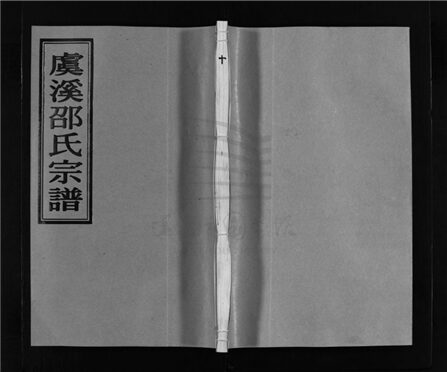 虞溪邵氏宗譜
十